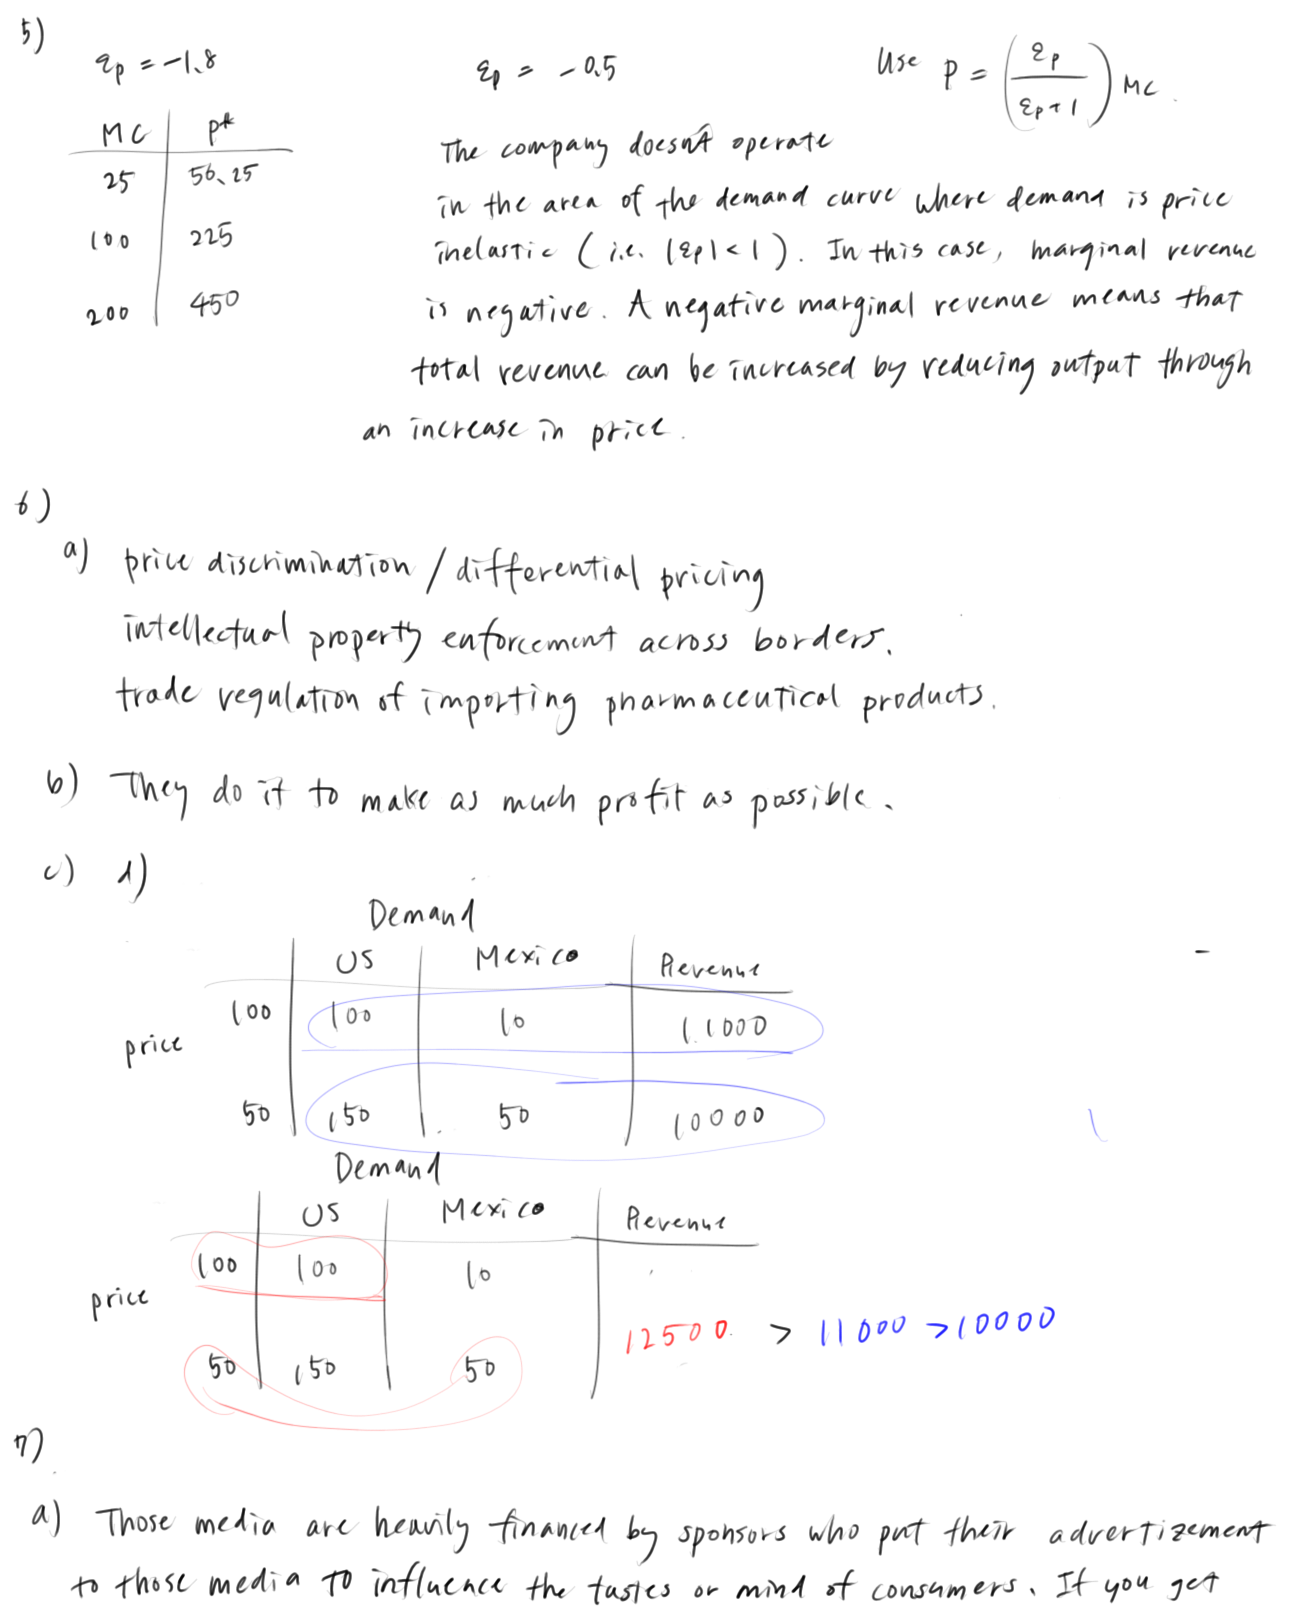 5)
εp = -1.8
εp = -0.5
Use P = (εp / εp+1) MC.
MC P*
25 56.25
100 225
200 450
The company doesn't operate
in the area of the demand curve where demand is price
inelastic (i.e. |εp| < 1). In this case, marginal revenue
is negative. A negative marginal revenue means that
total revenue can be increased by reducing output through
an increase in price.
6)
a) price discrimination / differential pricing
intellectual property enforcement across borders.
trade regulation of importing pharmaceutical products.
b) They do it to make as much profit as possible.
c) d)
Demand
US Mexico Revenue
100 100 10 11000
price
50 150 50 10000
Demand
US Mexico Revenue
100 100 10
price
12500 > 11000 > 10000
50 150 50
7)
a) Those media are heavily financed by sponsors who put their advertizement
to those media to influence the tastes or mind of consumers. If you get